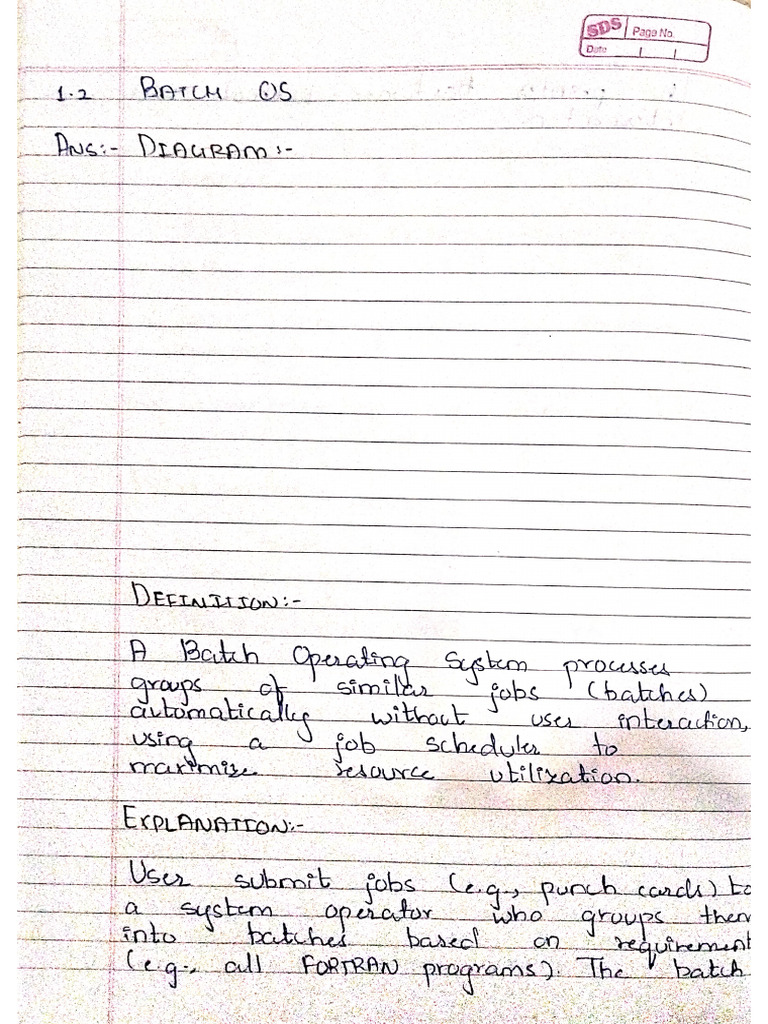 SDS Page No.
Date
1.2 BATCH OS
ANS:- DIAGRAM:-
DEFINITION:-
A Batch Operating System processes
groups of similar jobs (batches)
automatically without user interaction,
using a job scheduler to
maximize resource utilization.
EXPLANATION:-
User submit jobs (e.g., punch cards) to
a system operator who groups them
into batches based on requirement
(e.g., all FORTRAN programs). The batch